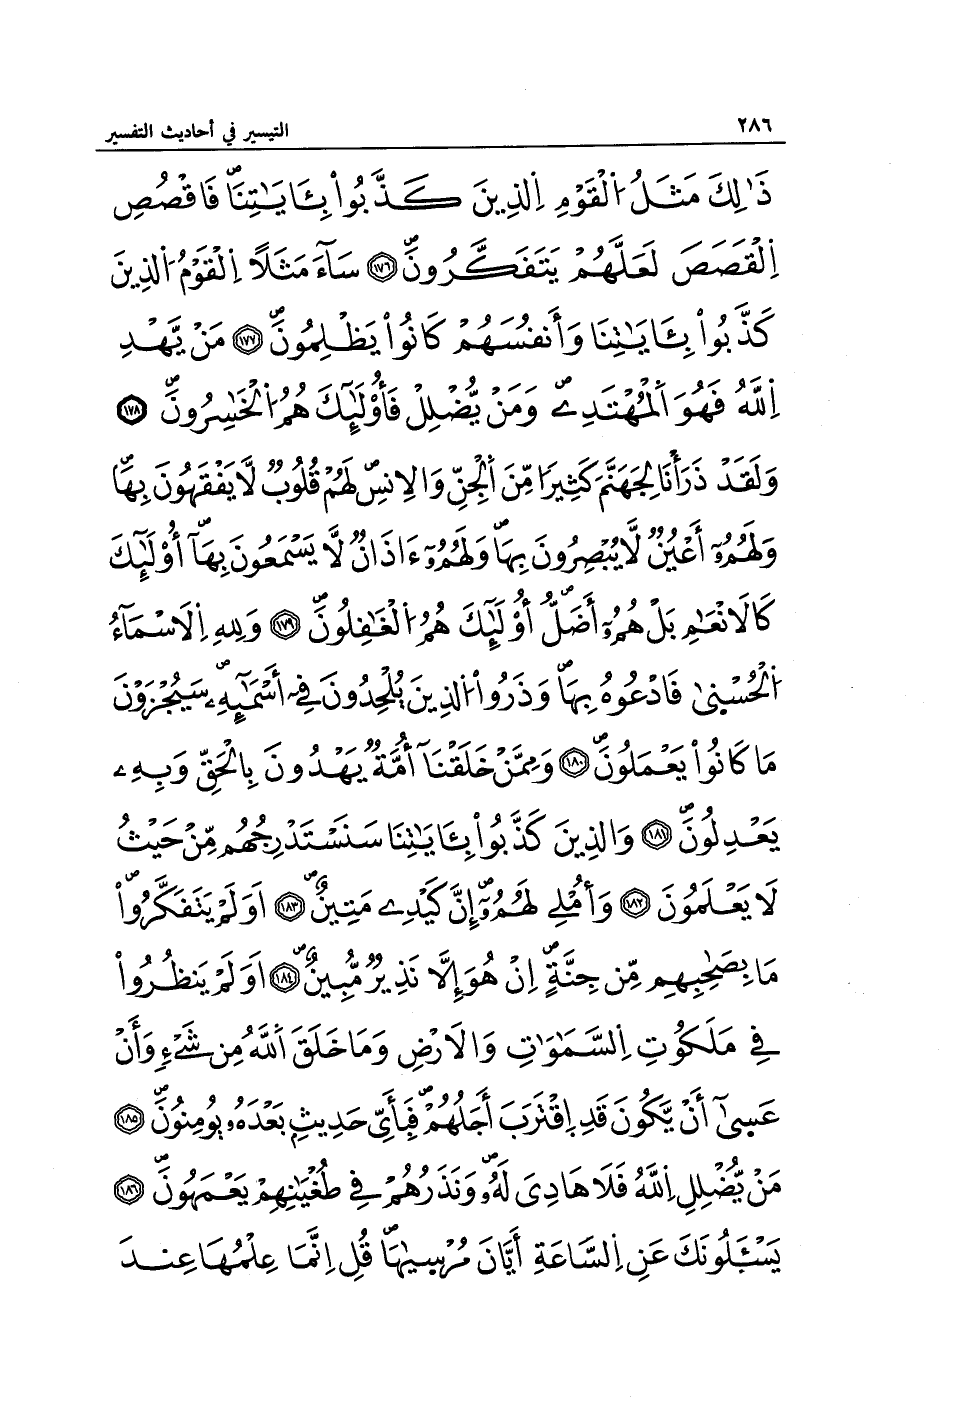 ٢٨٦
التيسير في أحاديث التفسير
ذَٰلِكَ مَثَلُ اُ۬لْقَوْمِ اِ۬لذِينَ كَذَّبُواْ بِـَٔايَٰتِنَاۖ فَاقْصُصِ
اِ۬لْقَصَصَ لَعَلَّهُمْ يَتَفَكَّرُونَۖ ١٧٦ سَآءَ مَثَلاً اِ۬لْقَوْمُ اُ۬لذِينَ
كَذَّبُواْ بِـَٔايَٰتِنَا وَأَنفُسَهُمْ كَانُواْ يَظْلِمُونَۖ ١٧٧ مَنْ يَّهْدِ
اِ۬للَّهُ فَهُوَ اَ۬لْمُهْتَدِےۖ وَمَنْ يُّضْلِلْ فَأُوْلَٰٓئِكَ هُمُ اُ۬لْخَٰسِرُونَۖ ١٧٨
وَلَقَدْ ذَرَأْنَا لِجَهَنَّمَ كَثِيراً مِّنَ اَ۬لْجِنِّ وَالِانسِۖ لَهُمْ قُلُوبٌ لَّا يَفْقَهُونَ بِهَاۖ
وَلَهُمُۥٓ أَعْيُنٌ لَّا يُبْصِرُونَ بِهَاۖ وَلَهُمُۥٓ ءَاذَانٌ لَّا يَسْمَعُونَ بِهَآۖ أُوْلَٰٓئِكَ
كَالَانْعَٰمِ بَلْ هُمُۥٓ أَضَلُّۖ أُوْلَٰٓئِكَ هُمُ اُ۬لْغَٰفِلُونَۖ ١٧٩ وَلِلهِ اِ۬لَاسْمَآءُ
اُ۬لْحُسْنىٰ فَادْعُوهُ بِهَاۖ وَذَرُواْ اُ۬لذِينَ يُلْحِدُونَ فِےٓ أَسْمَٰٓئِهِۦۖ سَيُجْزَوْنَ
مَا كَانُواْ يَعْمَلُونَۖ ١٨٠ وَمِمَّنْ خَلَقْنَآ أُمَّةٌ يَهْدُونَ بِالْحَقِّ وَبِهِۦ
يَعْدِلُونَۖ ١٨١ وَالذِينَ كَذَّبُواْ بِـَٔايَٰتِنَا سَنَسْتَدْرِجُهُم مِّنْ حَيْثُ
لَا يَعْلَمُونَ ١٨٢ وَأُمْلِے لَهُمُۥٓۖ إِنَّ كَيْدِے مَتِينٌۖ ١٨٣ اَوَلَمْ يَتَفَكَّرُواْۖ
مَا بِصَٰحِبِهِم مِّن جِنَّةٍۖ اِنْ هُوَ إِلَّا نَذِيرٌ مُّبِينٌۖ ١٨٤ اَوَلَمْ يَنظُرُواْ
فِے مَلَكُوتِ اِ۬لسَّمَٰوَٰتِ وَالَارْضِ وَمَا خَلَقَ اَ۬للَّهُ مِن شَےْءٍ وَأَنْ
عَسىٰٓ أَنْ يَّكُونَ قَدِ اِ۪قْتَرَبَ أَجَلُهُمْۖ فَبِأَيِّ حَدِيثِۢ بَعْدَهُۥ يُومِنُونَۖ ١٨٥
مَنْ يُّضْلِلِ اِ۬للَّهُ فَلَا هَادِيَ لَهُۥۖ وَنَذَرُهُمْ فِے طُغْيَٰنِهِمْ يَعْمَهُونَۖ ١٨٦
يَسْـَٔلُونَكَ عَنِ اِ۬لسَّاعَةِ أَيَّانَ مُرْسىٰهَاۖ قُلِ اِنَّمَا عِلْمُهَا عِندَ